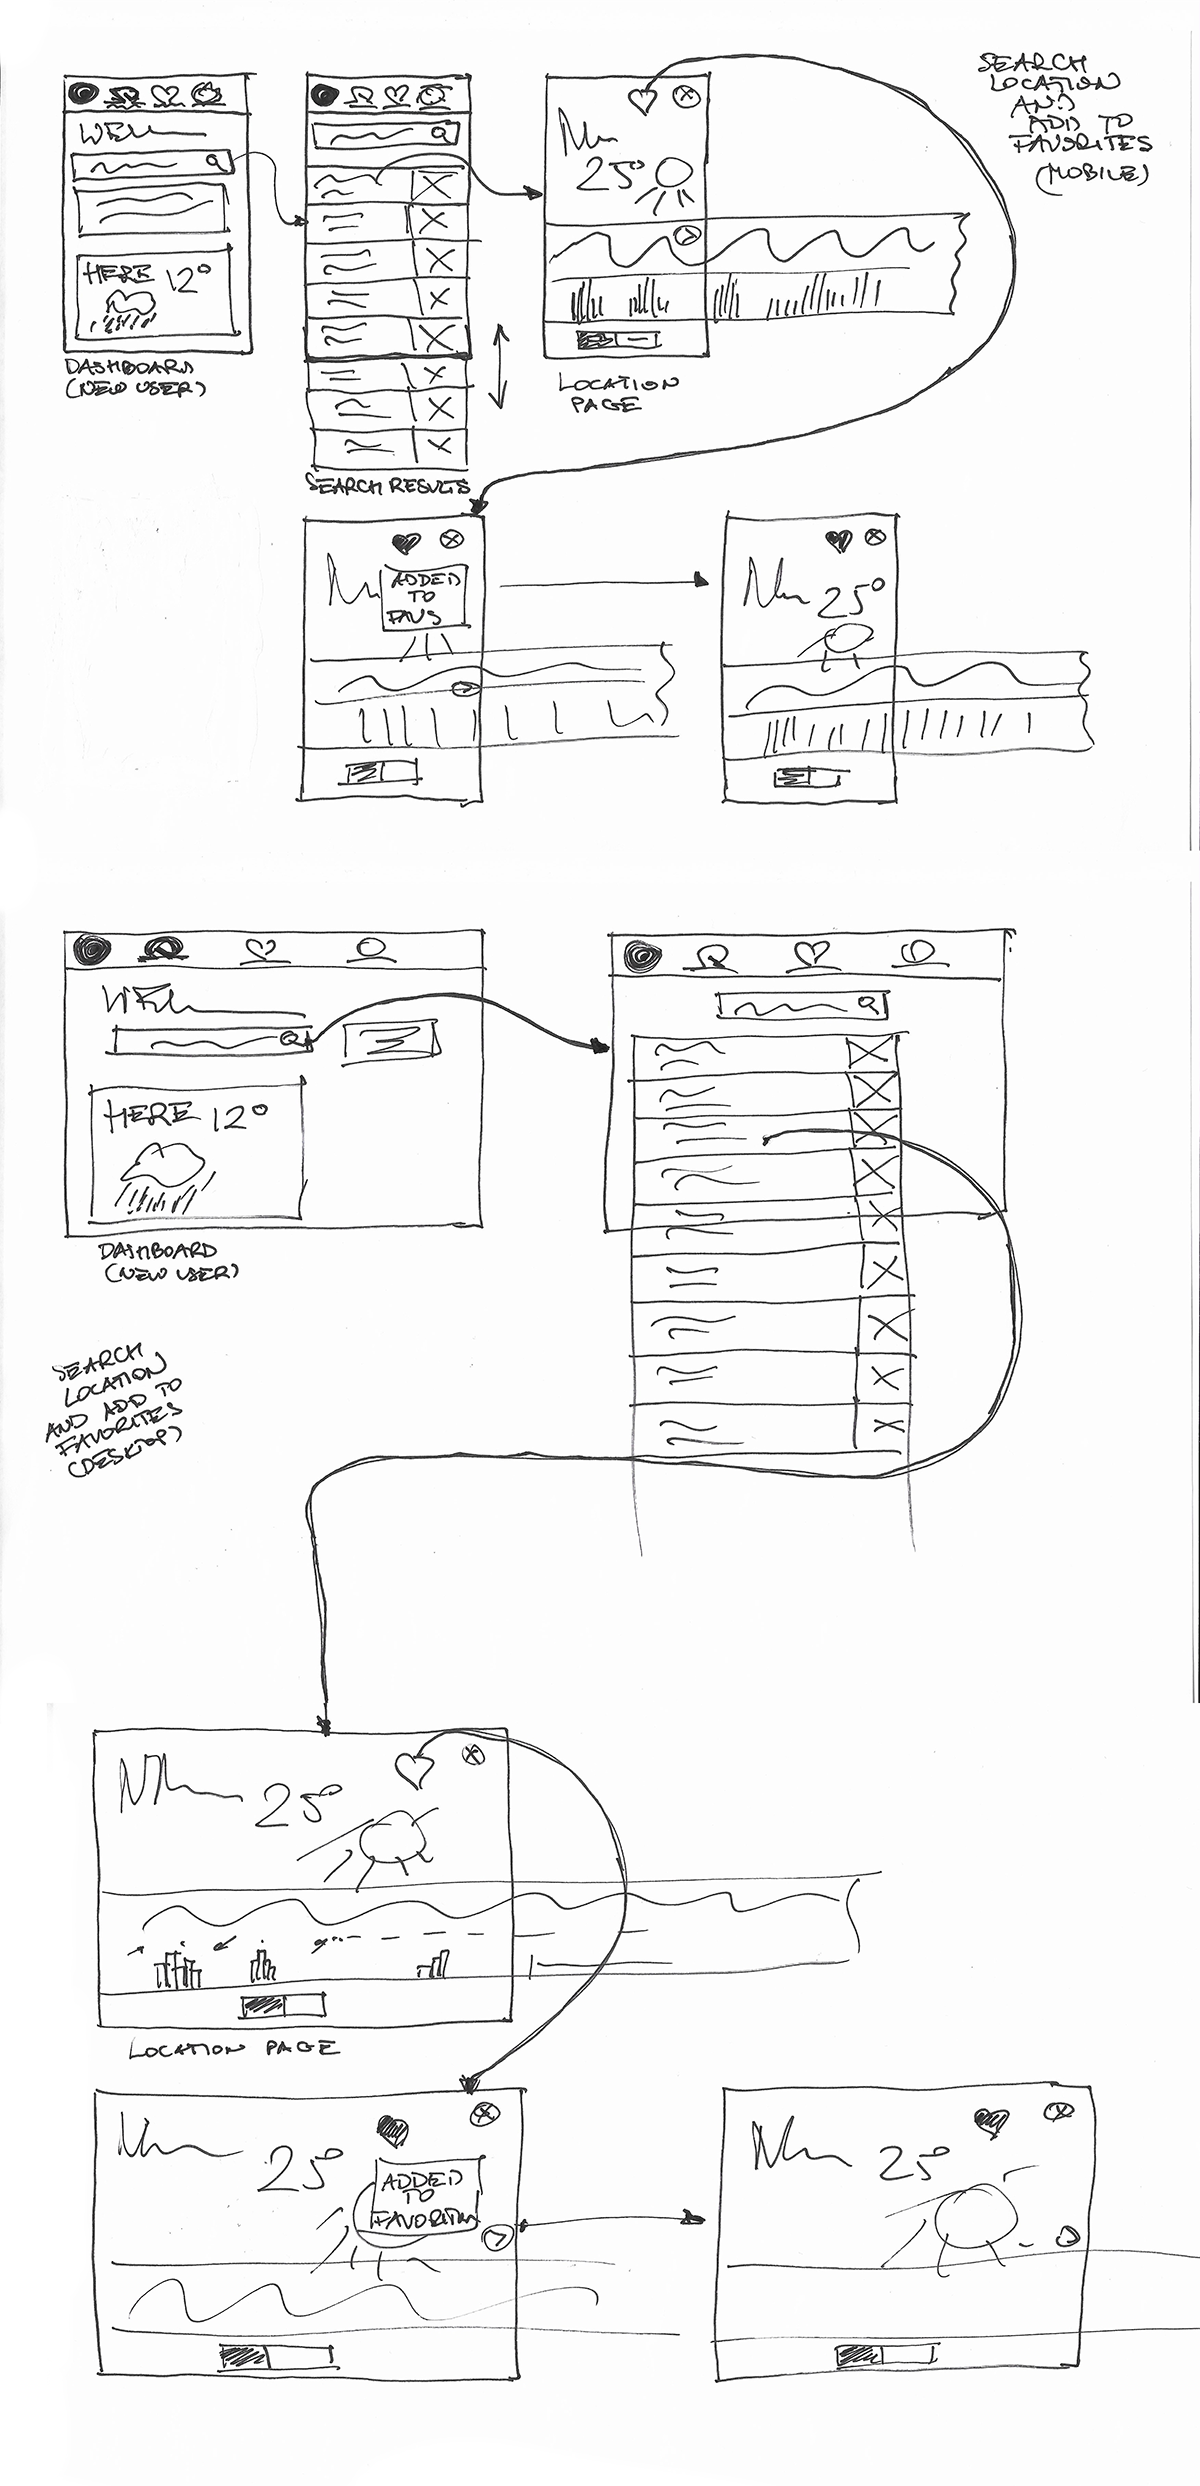 SEARCH
LOCATION
AND
ADD TO
FAVORITES
(MOBILE)
HERE 12°
DASHBOARD
(NEW USER)
SEARCH RESULTS
25°
LOCATION
PAGE
ADDED
TO
FAVS
25°
HERE 12°
DASHBOARD
(NEW USER)
SEARCH
LOCATION
AND ADD TO
FAVORITES
(DESKTOP)
25°
LOCATION PAGE
25°
ADDED
TO
25°